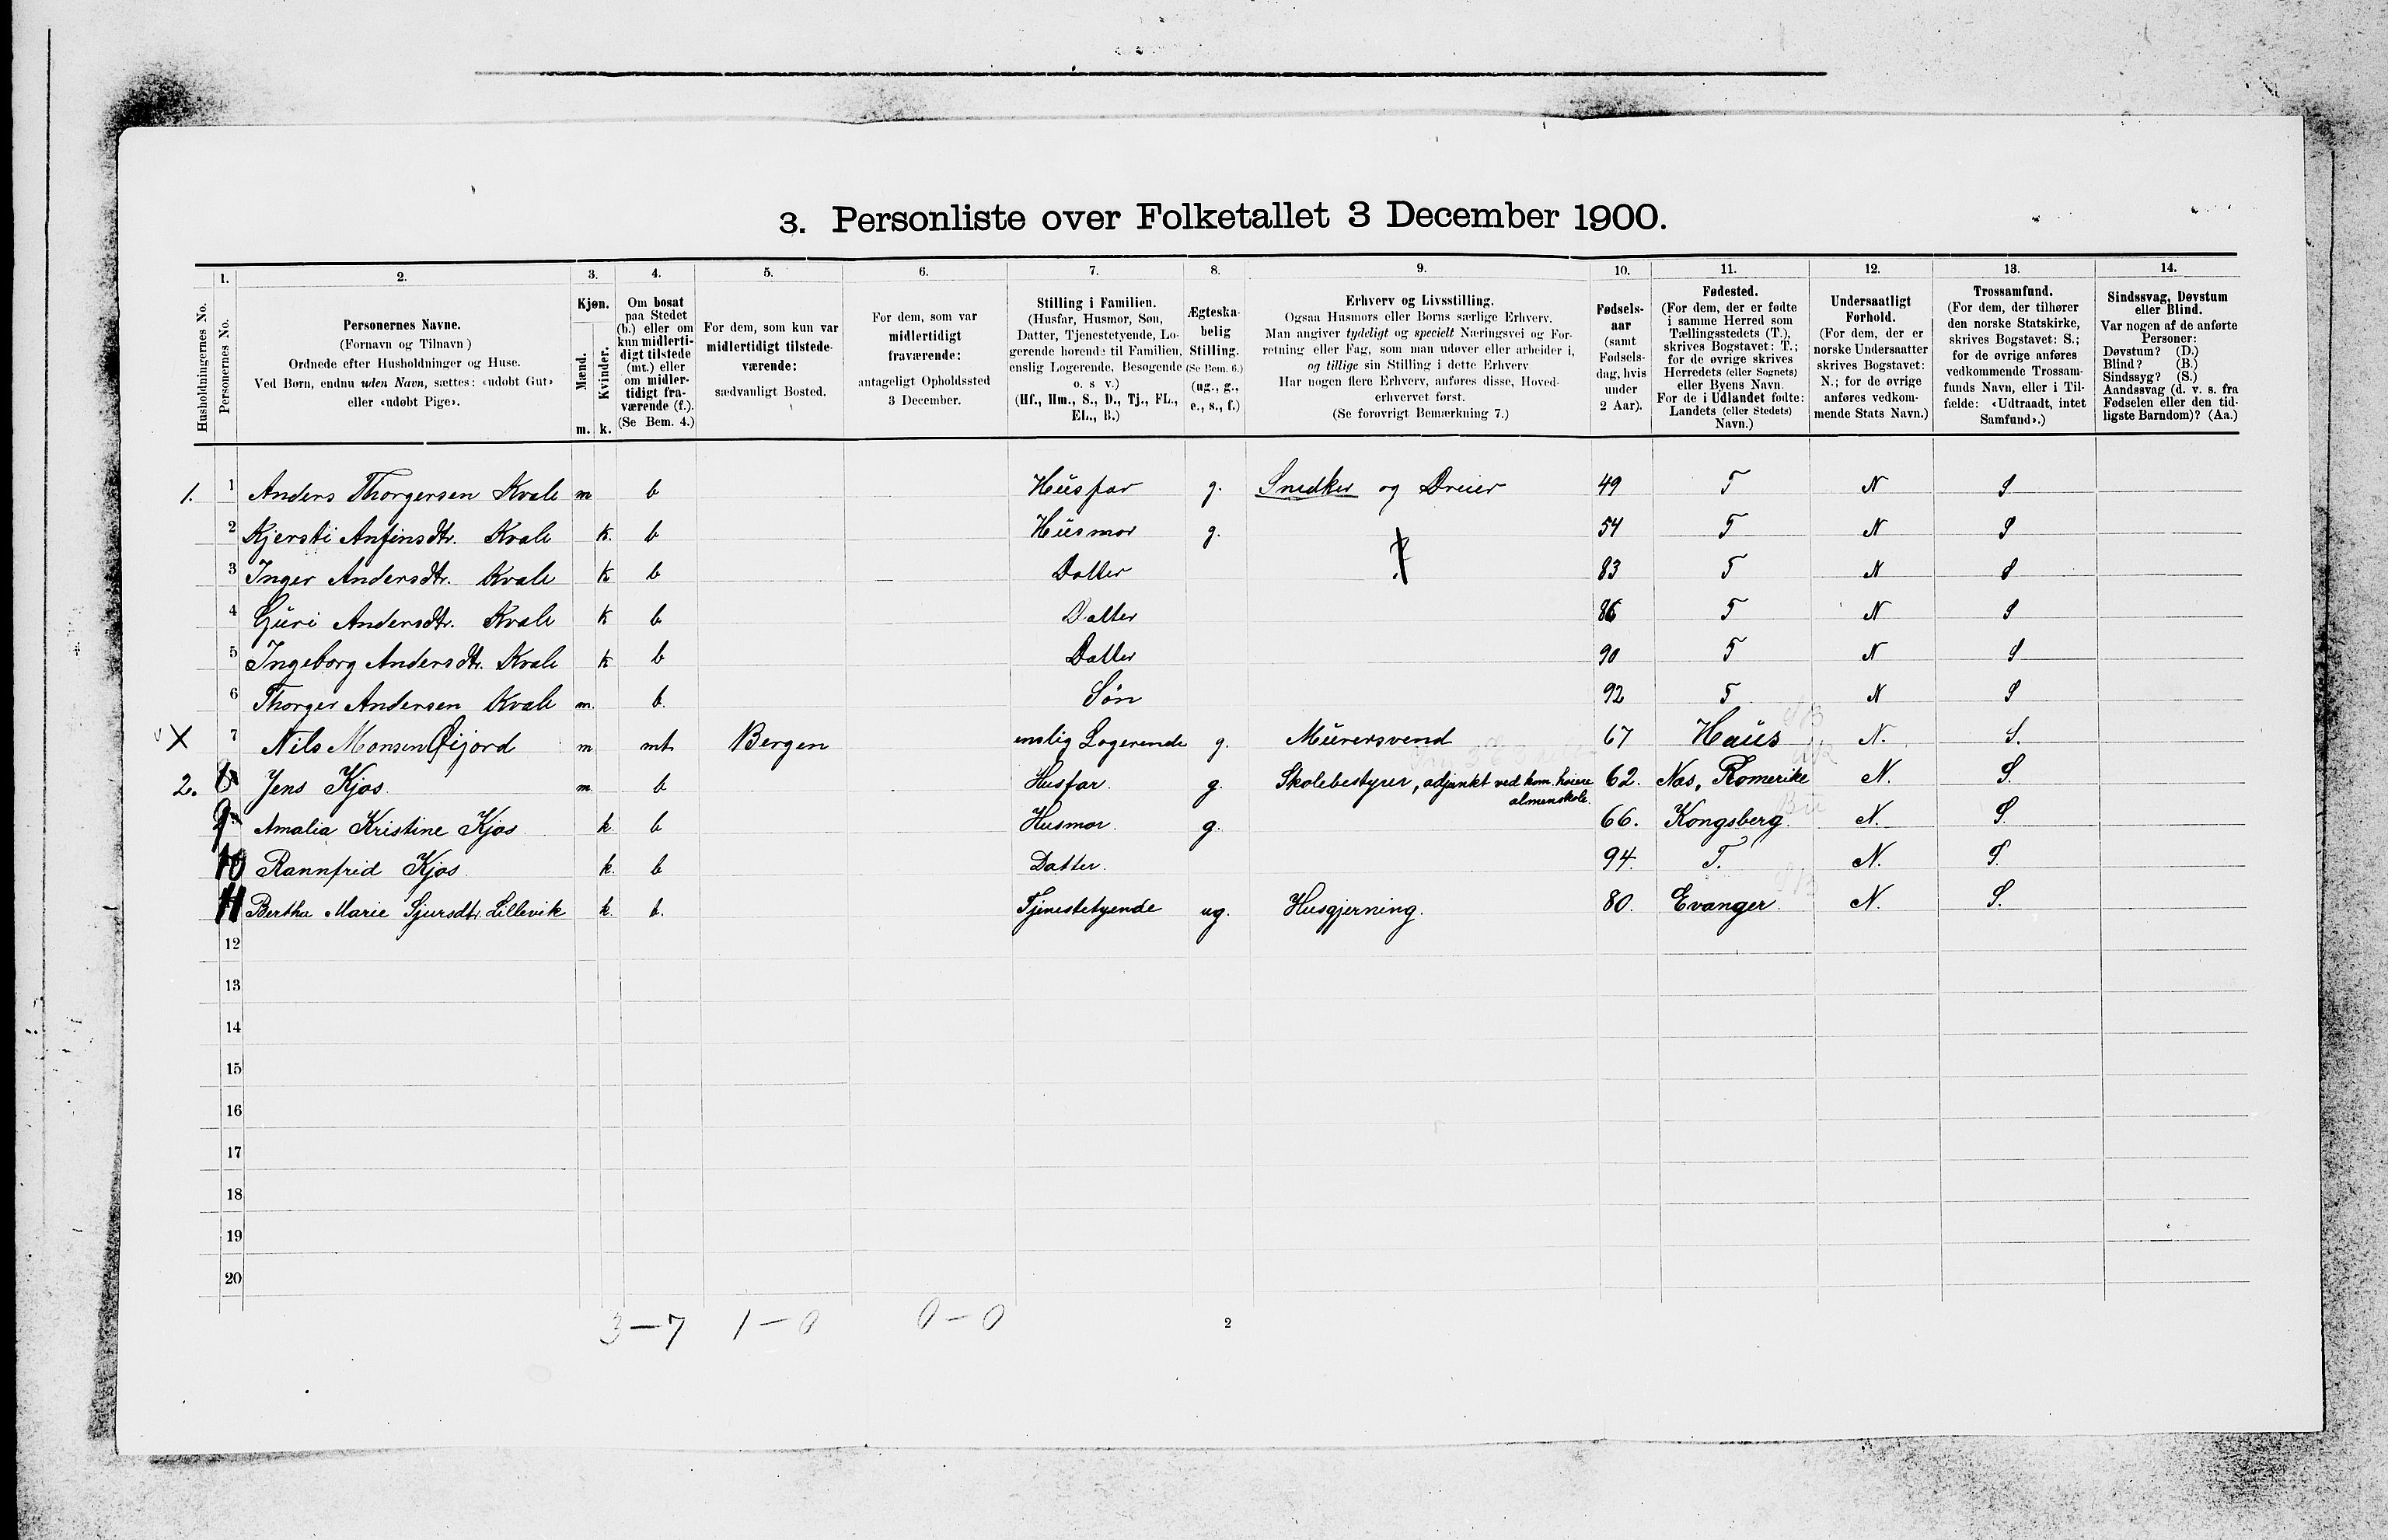 3. Personliste over Folketallet 3 December 1900.
Husholdningernes No.
1. Personernes No.
2. Personernes Navne.
(Fornavn og Tilnavn)
Ordnede efter Husholdninger og Huse.
Ved Børn, endnu uden Navn, sættes: «udøbt Gut»
eller «udøbt Pige».
3. Kjøn.
Mænd. m.
Kvinder. k.
4. Om bosat
paa Stedet
(b.) eller om
kun midlerti-
digt tilstede
(mt.) eller
om midler-
tidigt fra-
værende (f.).
(Se Bem. 4.)
5. For dem, som kun var
midlertidigt tilstede-
værende:
sædvanligt Bosted.
6. For dem, som var
midlertidigt
fraværende:
antageligt Opholdssted
3 December.
7. Stilling i Familien.
(Husfar, Husmor, Søn,
Datter, Tjenestetyende, Lo-
gerende hørende til Familien,
enslig Logerende, Besøgende
o. s v.)
(Hf., Hm., S., D., Tj., FL.,
EL., B.)
8. Ægteska-
belig
Stilling.
(Se Bem. 6.)
(ug., g.,
e., s., f.)
9. Erhverv og Livsstilling.
Ogsaa Husmors eller Børns særlige Erhverv.
Man angiver tydeligt og specielt Næringsvei og For-
retning eller Fag, som man udøver eller arbeider i,
og tillige sin Stilling i dette Erhverv
Har nogen flere Erhverv, anføres disse, Hoved-
erhvervet først.
(Se forøvrigt Bemærkning 7.)
10. Fødsels-
aar
(samt
Fødsels-
dag, hvis
under
2 Aar).
11. Fødested.
(For dem, der er fødte
i samme Herred som
Tællingsstedets (T.),
skrives Bogstavet: T.;
for de øvrige skrives
Herredets (eller Sognets)
eller Byens Navn.
For de i Udlandet fødte:
Landets (eller Stedets)
Navn.)
12. Undersaatligt
Forhold.
(For dem, der er
norske Undersaatter
skrives Bogstavet:
N.; for de øvrige
anføres vedkom-
mende Stats Navn.)
13. Trossamfund.
(For dem, der tilhører
den norske Statskirke,
skrives Bogstavet: S.;
for de øvrige anføres
vedkommende Trossam-
funds Navn, eller i Til-
fælde: «Udtraadt, intet
Samfund».)
14. Sindssvag, Døvstum
eller Blind.
Var nogen af de anførte
Personer:
Døvstum? (D.)
Blind? (B.)
Sindssyg? (S.)
Aandssvag (d. v. s. fra
Fødselen eller den tid-
ligste Barndom)? (Aa.)
1. 1 Anders Thorgersen Kvale m b Husfar g. Snedker og Dreier 49 T N S
2 Kjersti Anfinsdtr. Kvale k. b Husmor g. 54 T N S
3 Inger Andersdtr. Kvale k b Datter 83 T N S
4 Guri Andersdtr. Kvale k b Datter 86 T N S
5 Ingeborg Andersdtr. Kvale k b Datter 90 T N S
6 Thorger Andersen Kvale m. b. Søn 92 T N S
X 7 Nils Monsen Øijord m mt Bergen enslig Logerende g. Murersvend 67 Haus N. S.
2. 8 Jens Kjos m b Husfar. g. Skolebestyrer, adjunkt ved kom. høiere 62. Nas, Romerike N. S.
almenskole.
9 Amalia Kristine Kjos k. b Husmor. g. 66. Kongsberg. N. S.
10 Rannfrid Kjos k. b Datter. 94. T. N. S.
11 Bertha Marie Sjursdtr. Lillevik k. b. Tjenestetyende ug. Husgjerning. 80. Evanger N. S.
12
13
14
15
16
17
18
19
20
3-7 1-0 0-0
2